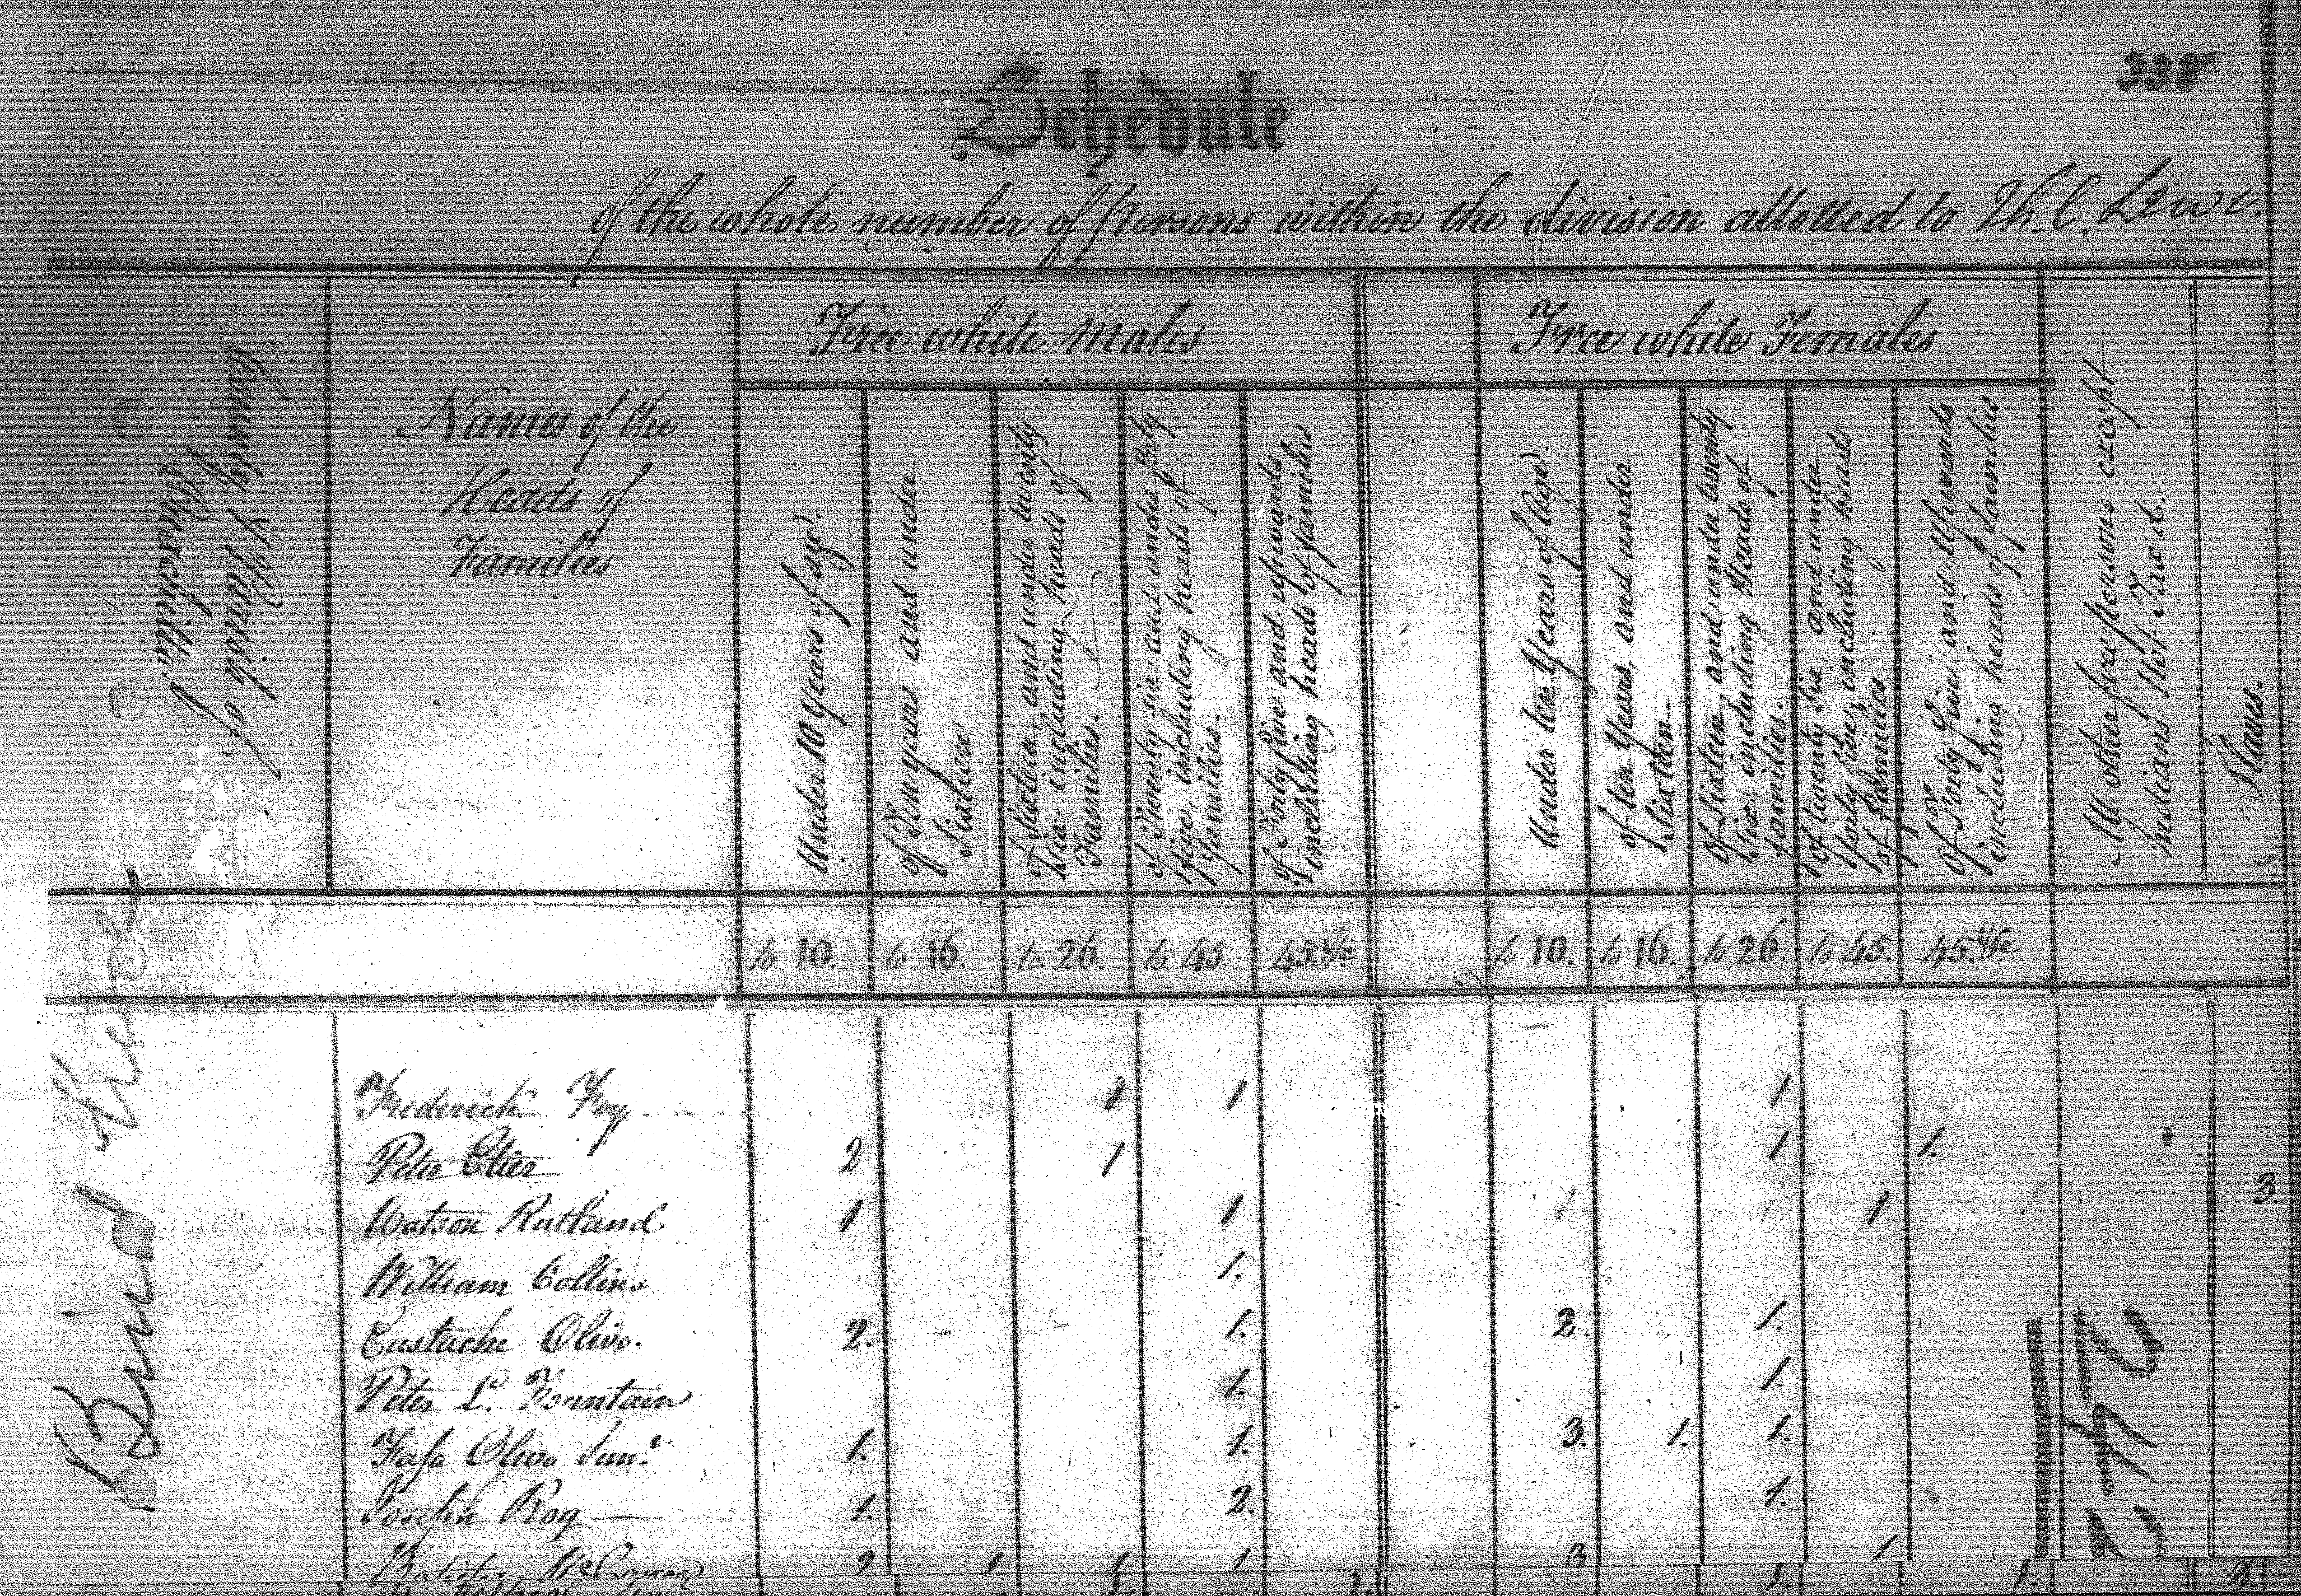 338
Schedule
of the whole number of persons within the division allotted to Th. C. Lewe.
County & Parish of
Ouachitta
Names of the
Heads of
Families
Free white Males
Under 10 Years of age.
of Ten years and under
Sixteen
of Sixteen, and under twenty
Six including heads of
Families.
of Twenty six and under forty
five including heads of
families.
of Forty five and upwards
including heads of families
Free white Females
Under ten Years of age.
of ten Years, and under
Sixteen.
of Sixteen and under twenty
Six, including Heads of
families.
of twenty six and under
forty five, including heads
of Families
of Forty five and Upwards
including heads of families
All other free persons except
Indians not Taxd.
Slaves.
to 10. to 16. to 26. to 45. 45.&c to 10. to 16. to 26. to 45. 45.&c
Frederick Foy 1 1 1
Peter Etier 2 1 1 1.
Watson Rutland 1 1 1 3.
William Collins 1.
Eustache Olivo. 2. 1. 2. 1.
Peter La. Fountain 1. 1.
Olivo Junr. 1. 1. 3. 1. 1.
Joseph Roy 1. 2. 1.
2 1 1. 1 3 1
Bind Here